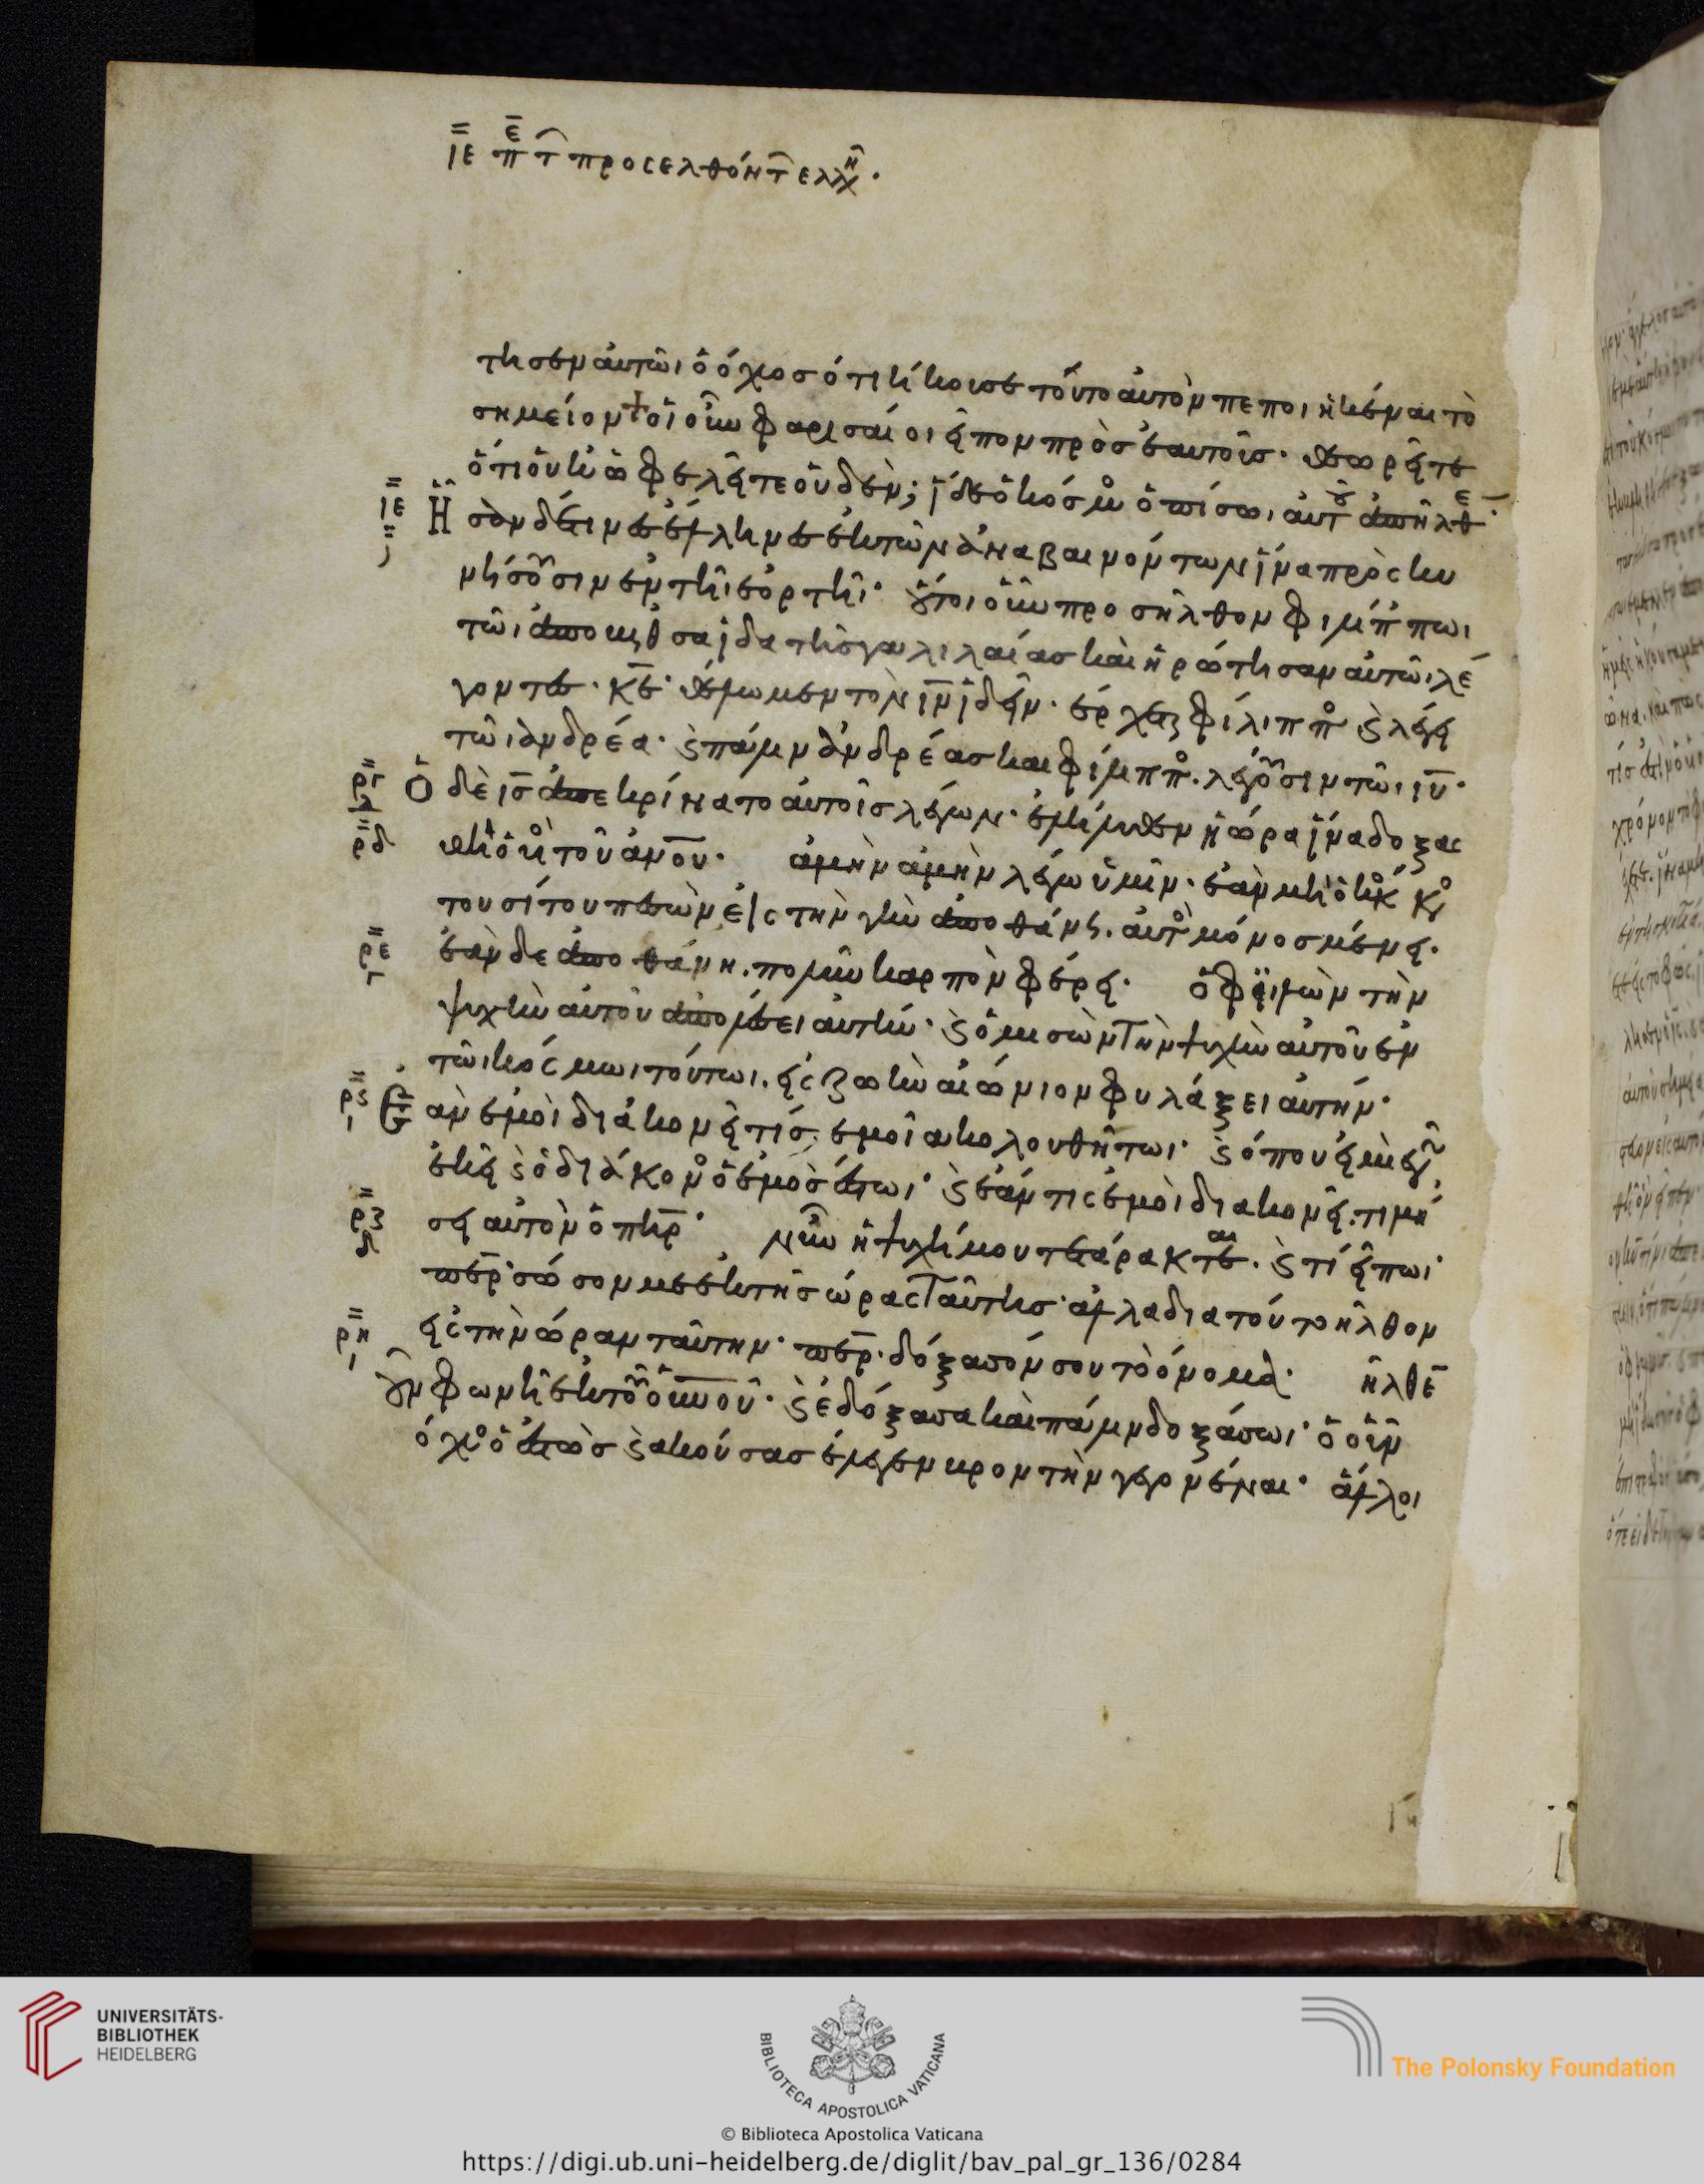 ιε πε τ προσελθόντ ελλην·
τησεν αὐτῶι ὁ ὄχλος ὅτι ἤκουσε τοῦτο αὐτὸν πεποιηκέναι τὸ
σημεῖον + οἱ οὖν φαρισαῖοι εἶπον πρὸς ἑαυτοῖς· θεωρεῖτε
ὅτι οὐκ ὠφελεῖτε οὐδὲν; ἴδε ὁ κόσμος ὀπίσωι αὐτοῦ ἀπῆλθεν·
ιε Ἦσαν δέ τινες ἕλληνες ἐκ τῶν ἀναβαινόντων ἵνα προσκυ
νήσουσιν ἐν τῆι ἑορτῆι· οὗτοι οὖν προσῆλθον φιλίππωι
τῶι ἀπὸ βηθσαϊδα τῆς γαλιλαίας καὶ ἠρώτησαν αὐτῶι λέ
γοντες· κ̅ε̅· θέλωμεν τὸν ι̅ν̅ ἰδεῖν· ἔρχεται φίλιππος καὶ λέγει
τῶι ἀνδρέα· καὶ πάλιν ἀνδρέας καὶ φίλιππος· λέγουσιν τῶι ι̅υ̅·
ργ δ Ὁ δὲ ι̅ς̅ ἀπεκρίνατο αὐτοῖς λέγων· ἐλήλυθεν ἡ ὥρα ἵνα δοξας
ρδ θῆ ὁ υἱὸς τοῦ α̅ν̅ο̅υ̅· ἀμὴν ἀμὴν λέγω ὑμῖν· ἐὰν μὴ ὁ κόκκος
του σίτου πεσὼν εἰς τὴν γῆν ἀποθάνη· αὐτὸς μόνος μένει·
ρε γ ἐὰν δε ἀποθάνη· πολὺν καρπὸν φέρει· ὁ φιλὼν τὴν
ψυχὴν αὐτοῦ ἀπολέσει αὐτήν· καὶ ὁ μισὼν τὴν ψυχὴν αὐτοῦ ἐν
τῶι κόσμωι τούτωι· εἰς ζωὴν αἰώνιον φυλάξει αὐτήν·
ρς ι Ἐὰν ἐμοὶ διακονεῖ τίς· ἐμοὶ ἀκολουθήτωι· καὶ ὅπου εἰμὶ ἐγὼ
ἐκεῖ καὶ ὁ διάκονος ὁ ἐμὸς ἔστωι· καὶ ἐάν τις ἐμοὶ διακονεῖ· τιμή
ρζ δ σει αὐτὸν ὁ π̅η̅ρ̅· νῦν ἡ ψυχή μου τετάρακται· καὶ τί εἴπωι·
π̅ε̅ρ̅· σώσον με ἐκ τῆς ὥρας ταύτης· ἀλλα δια τοῦτο ἦλθον
ρη ι εἰς τὴν ὥραν ταύτην· π̅ε̅ρ̅· δόξασόν σου τὸ ὄνομα· ἦλθεν
οὖν φωνὴ ἐκ τοῦ ο̅υ̅ν̅ο̅υ̅· καὶ ἐδόξασα καὶ πάλιν δοξάσωι· ὁ οὖν
ὄχλος ὁ ἑστὼς καὶ ἀκούσας ἔλεγεν βροντὴν γεγονέναι· ἄλλοι
UNIVERSITÄTS-
BIBLIOTHEK
HEIDELBERG
BIBLIOTECA APOSTOLICA VATICANA
The Polonsky Foundation
© Biblioteca Apostolica Vaticana
https://digi.ub.uni-heidelberg.de/diglit/bav_pal_gr_136/0284